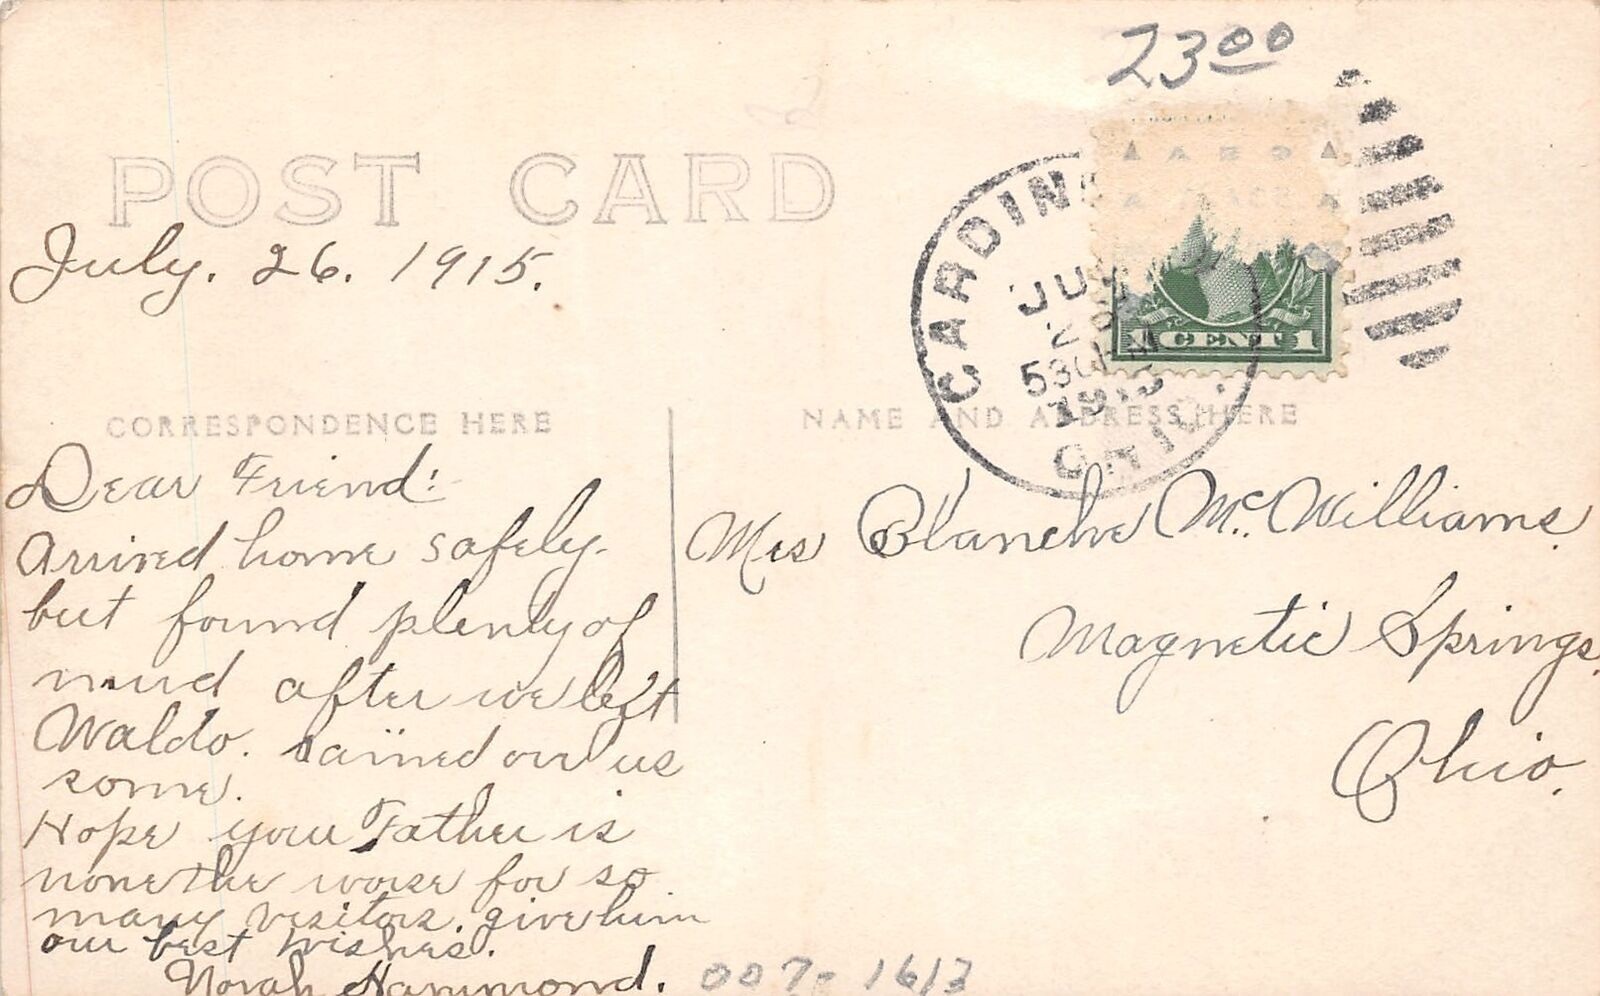 23 00
POST CARD
July. 26. 1915.
CARDIN
JUL
530 PM
1915
OHIO.
1 CENT 1
CORRESPONDENCE HERE
NAME AND ADDRESS HERE
Dear Friend:
Arrived home safely.
but found plenty of
mud after we left
Waldo. rained on us
some.
Hope your Father is
none the worse for so
many visitors. give him
our best wishes.
Norah Hammond.
Mrs Blanche Mc. Williams.
Magnetic Springs.
Ohio.
007- 1613